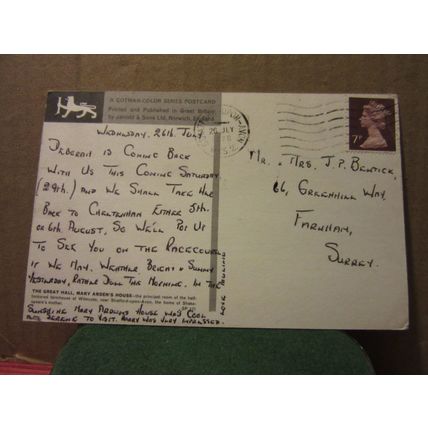 A COTMAN-COLOR SERIES POSTCARD
Printed and Published in Great Britain
by Jarrold & Sons Ltd, Norwich, England
7P
WEDNESDAY. 26th JULY.
DEBORAH IS COMING BACK
WITH US THIS COMING SATURDAY
(29th.) AND WE SHALL TAKE HER
BACK TO CHELTENHAM EITHER 5th.
OR 6th AUGUST, SO WE'LL POP UP
TO SEE YOU ON THE RACECOURSE
IF WE MAY. WEATHER BRIGHT & SUNNY
YESTERDAY, RATHER DULL THIS MORNING. IN THE
THE GREAT HALL, MARY ARDEN'S HOUSE—the principal room of the half-
timbered farmhouse at Wilmcote, near Stratford-upon-Avon, the home of Shake-
speare's mother.
SUNSHINE MARY ARDEN'S HOUSE WAS COOL
AND SERENE TO VISIT. MARY WAS VERY IMPRESSED.
LOVE PAULINE
MR. & MRS. J.P. BENTICK,
66, GREENHILL WAY,
FARNHAM,
SURREY.